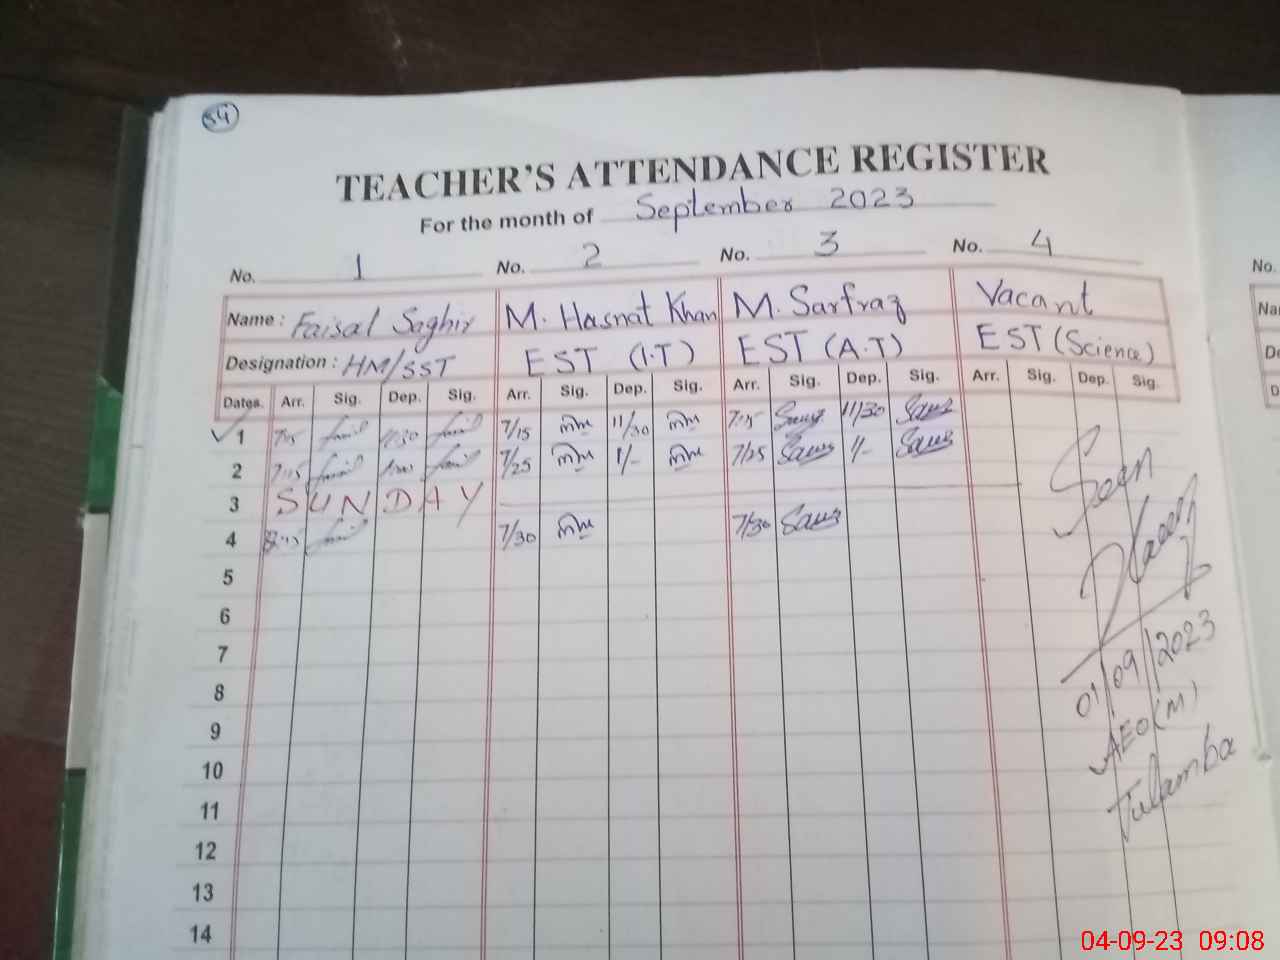 54
TEACHER'S ATTENDANCE REGISTER
For the month of September 2023
No. 1 No. 2 No. 3 No. 4
No.
Name : Faisal Saghir M. Hasnat Khan M. Sarfraz Vacant
Designation : HM/SST EST (I.T) EST (A.T) EST (Science)
Dates. Arr. Sig. Dep. Sig. Arr. Sig. Dep. Sig. Arr. Sig. Dep. Sig. Arr. Sig. Dep. Sig.
1 7/15 11/30 7/15 11/30 7/15 11/30
2 7/15 7/25 1/- 7/25 1/-
3 SUNDAY
4 7/30 7/30
5
6
7
8
9
10
11
12
13
14
Seen
01/09/2023
AEO (M)
Tulamba
04-09-23 09:08